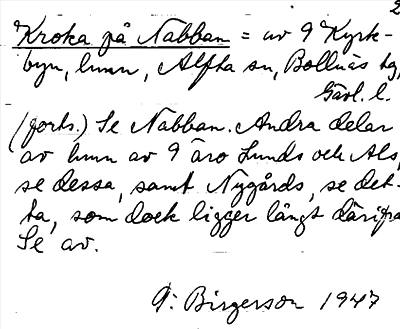 2
Kroka på Nabban = av 9 Kyrk-
byn, hmn, Alfta sn, Bollnäs tg,
Gävl. l.
(forts.) Se Nabban. Andra delar
av hmn av 9 äro Lunds och Als,
se dessa, samt Nygårds, se det-
ta, som dock ligger långt därifrå
Se av.
G. Birgerson 1947